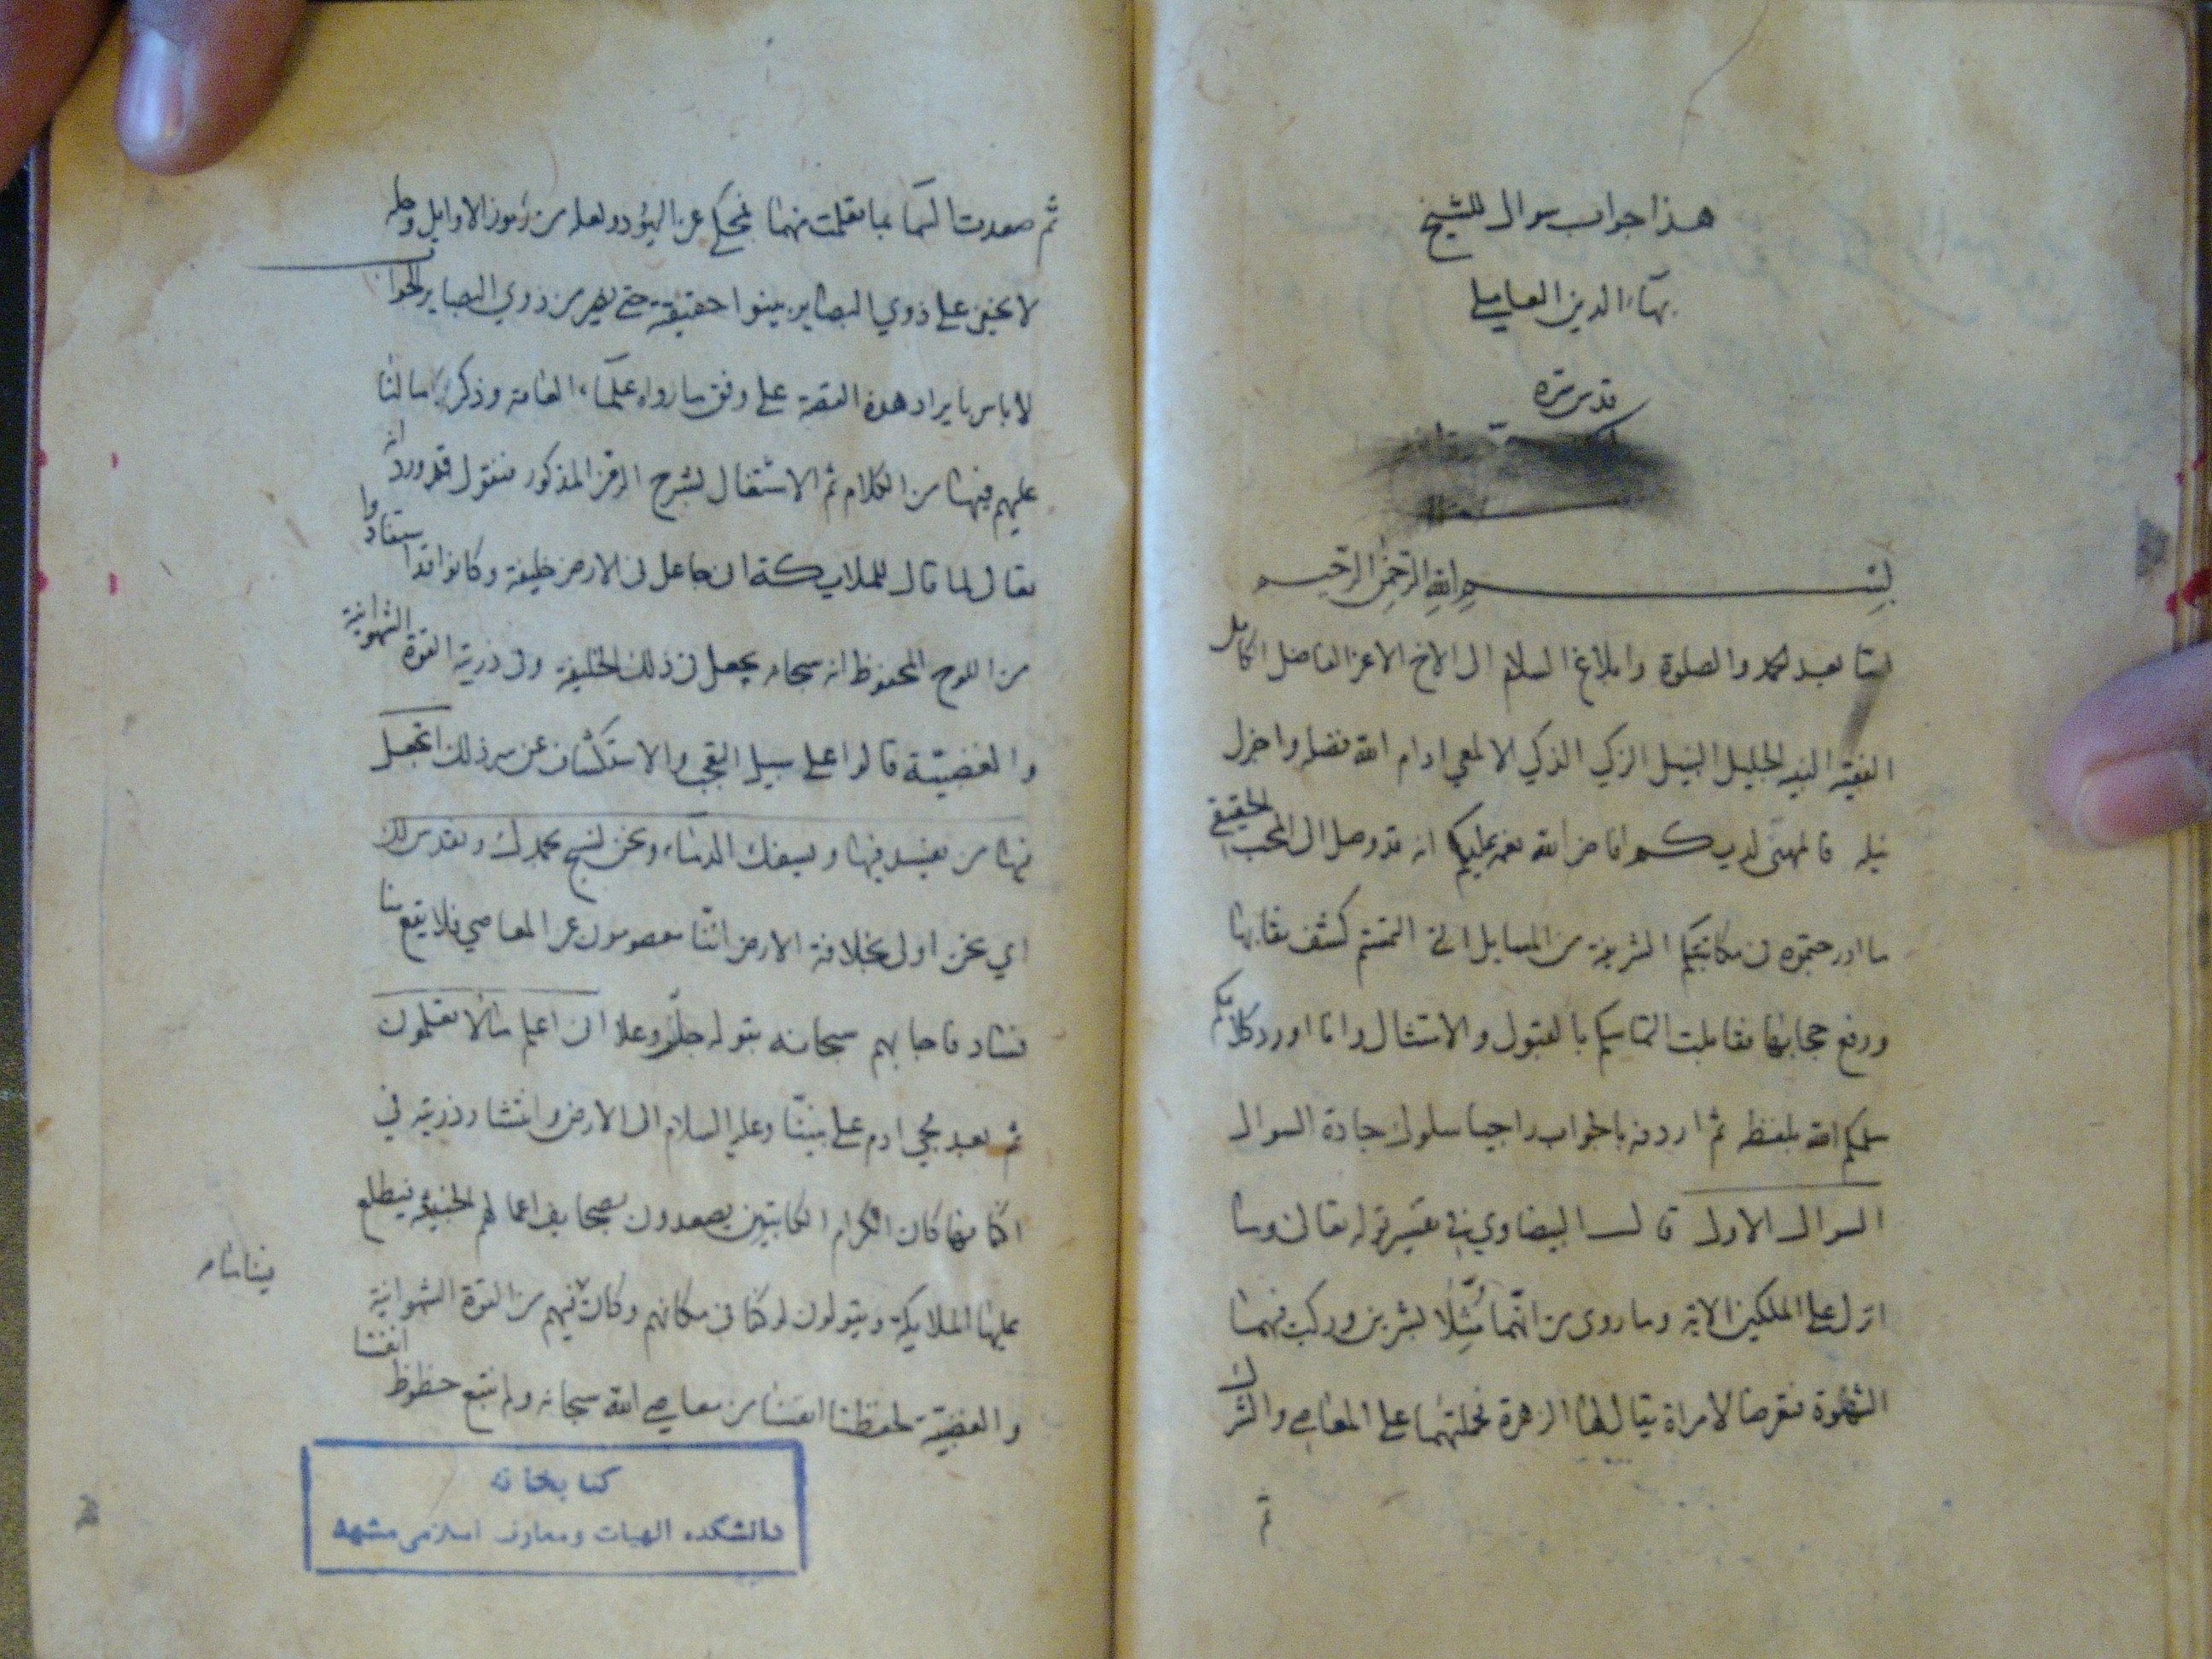 هذا جواب سوال للشيخ
بهاء الدين العاملي
قدس سره
بسم الله الرحمن الرحيم
اما بعد الحمد والصلوة وابلاغ السلام الى الاخ الاعز الفاضل الكامل
الفقيه النبيه الجليل النبيل الزكي الذكي الالمعي ادام الله فضله واجزل
نيله فالمهنى لديكم افاض الله نعمه عليكم انه قد وصل الى المحب الحقيقي
ما ادرجتموه في مكاتبتكم الشريفة من المسايل التي التمستم كشف نقابها
ورفع حجابها فقابلت التماسكم بالقبول والامتثال وانا اورد كلامكم
سلمكم الله بلفظه ثم اردفه بالجواب راجيا سلوك جادة السوال
السوال الاول قال البيضاوي في تفسير قوله تعالى وما
انزل على الملكين الاية وما روى من انهما مُثِّلا بشرين وركب فيهما
الشهوة فتعرضا لامراة يقال لها الزهرة فحملتهما على المعاصي والشرك
ثم
ثم صعدت السما بما تعلمت منهما فمحكي عن اليهود ولعله من رموز الاوايل وحله
لا يخفى على ذوي البصاير بينوا حقيقته حتى يصير من ذوي البصاير الجواب
لا باس بايراد هذه القصة على وفق ما رواه علماء العامة وذكر ما لنا
عليهم فيها من الكلام ثم الاشتغال بشرح الرمز المذكور فنقول قد ورد انه
تعالى لما قال للملايكة اني جاعل في الارض خليفة وكانوا قد استفادوا
من اللوح المحفوظ انه سبحانه يجعل في ذلك الخليفة وفي ذريته القوة الشهوانية
والغضبية قالوا على سبيل التعجب والاستكشاف عن سر ذلك اتجعل
فيها من يفسد فيها ويسفك الدماء ونحن نسبح بحمدك ونقدس لك
اي نحن اولى بخلافة الارض اننا معصومون عن المعاصي فلا يقع منا
فساد فاجابهم سبحانه بقوله جل وعلا اني اعلم ما لا تعلمون
ثم بعد مجي ادم على نبينا وعليه السلام الى الارض وانتشار ذريته في
اكنافها كان الكرام الكاتبين يصعدون بصحايف اعمالهم الخبيثة فيطلع
عليها الملايكة ويقولون لو كنا في مكانهم وكان فينا ما فيهم من القوة الشهوانية
والغضبية لحفظنا انفسنا من معاصي الله سبحانه ولم نتبع حظوظ انفسنا
كتابخانه
دانشكده الهيات ومعارف اسلامى مشهد